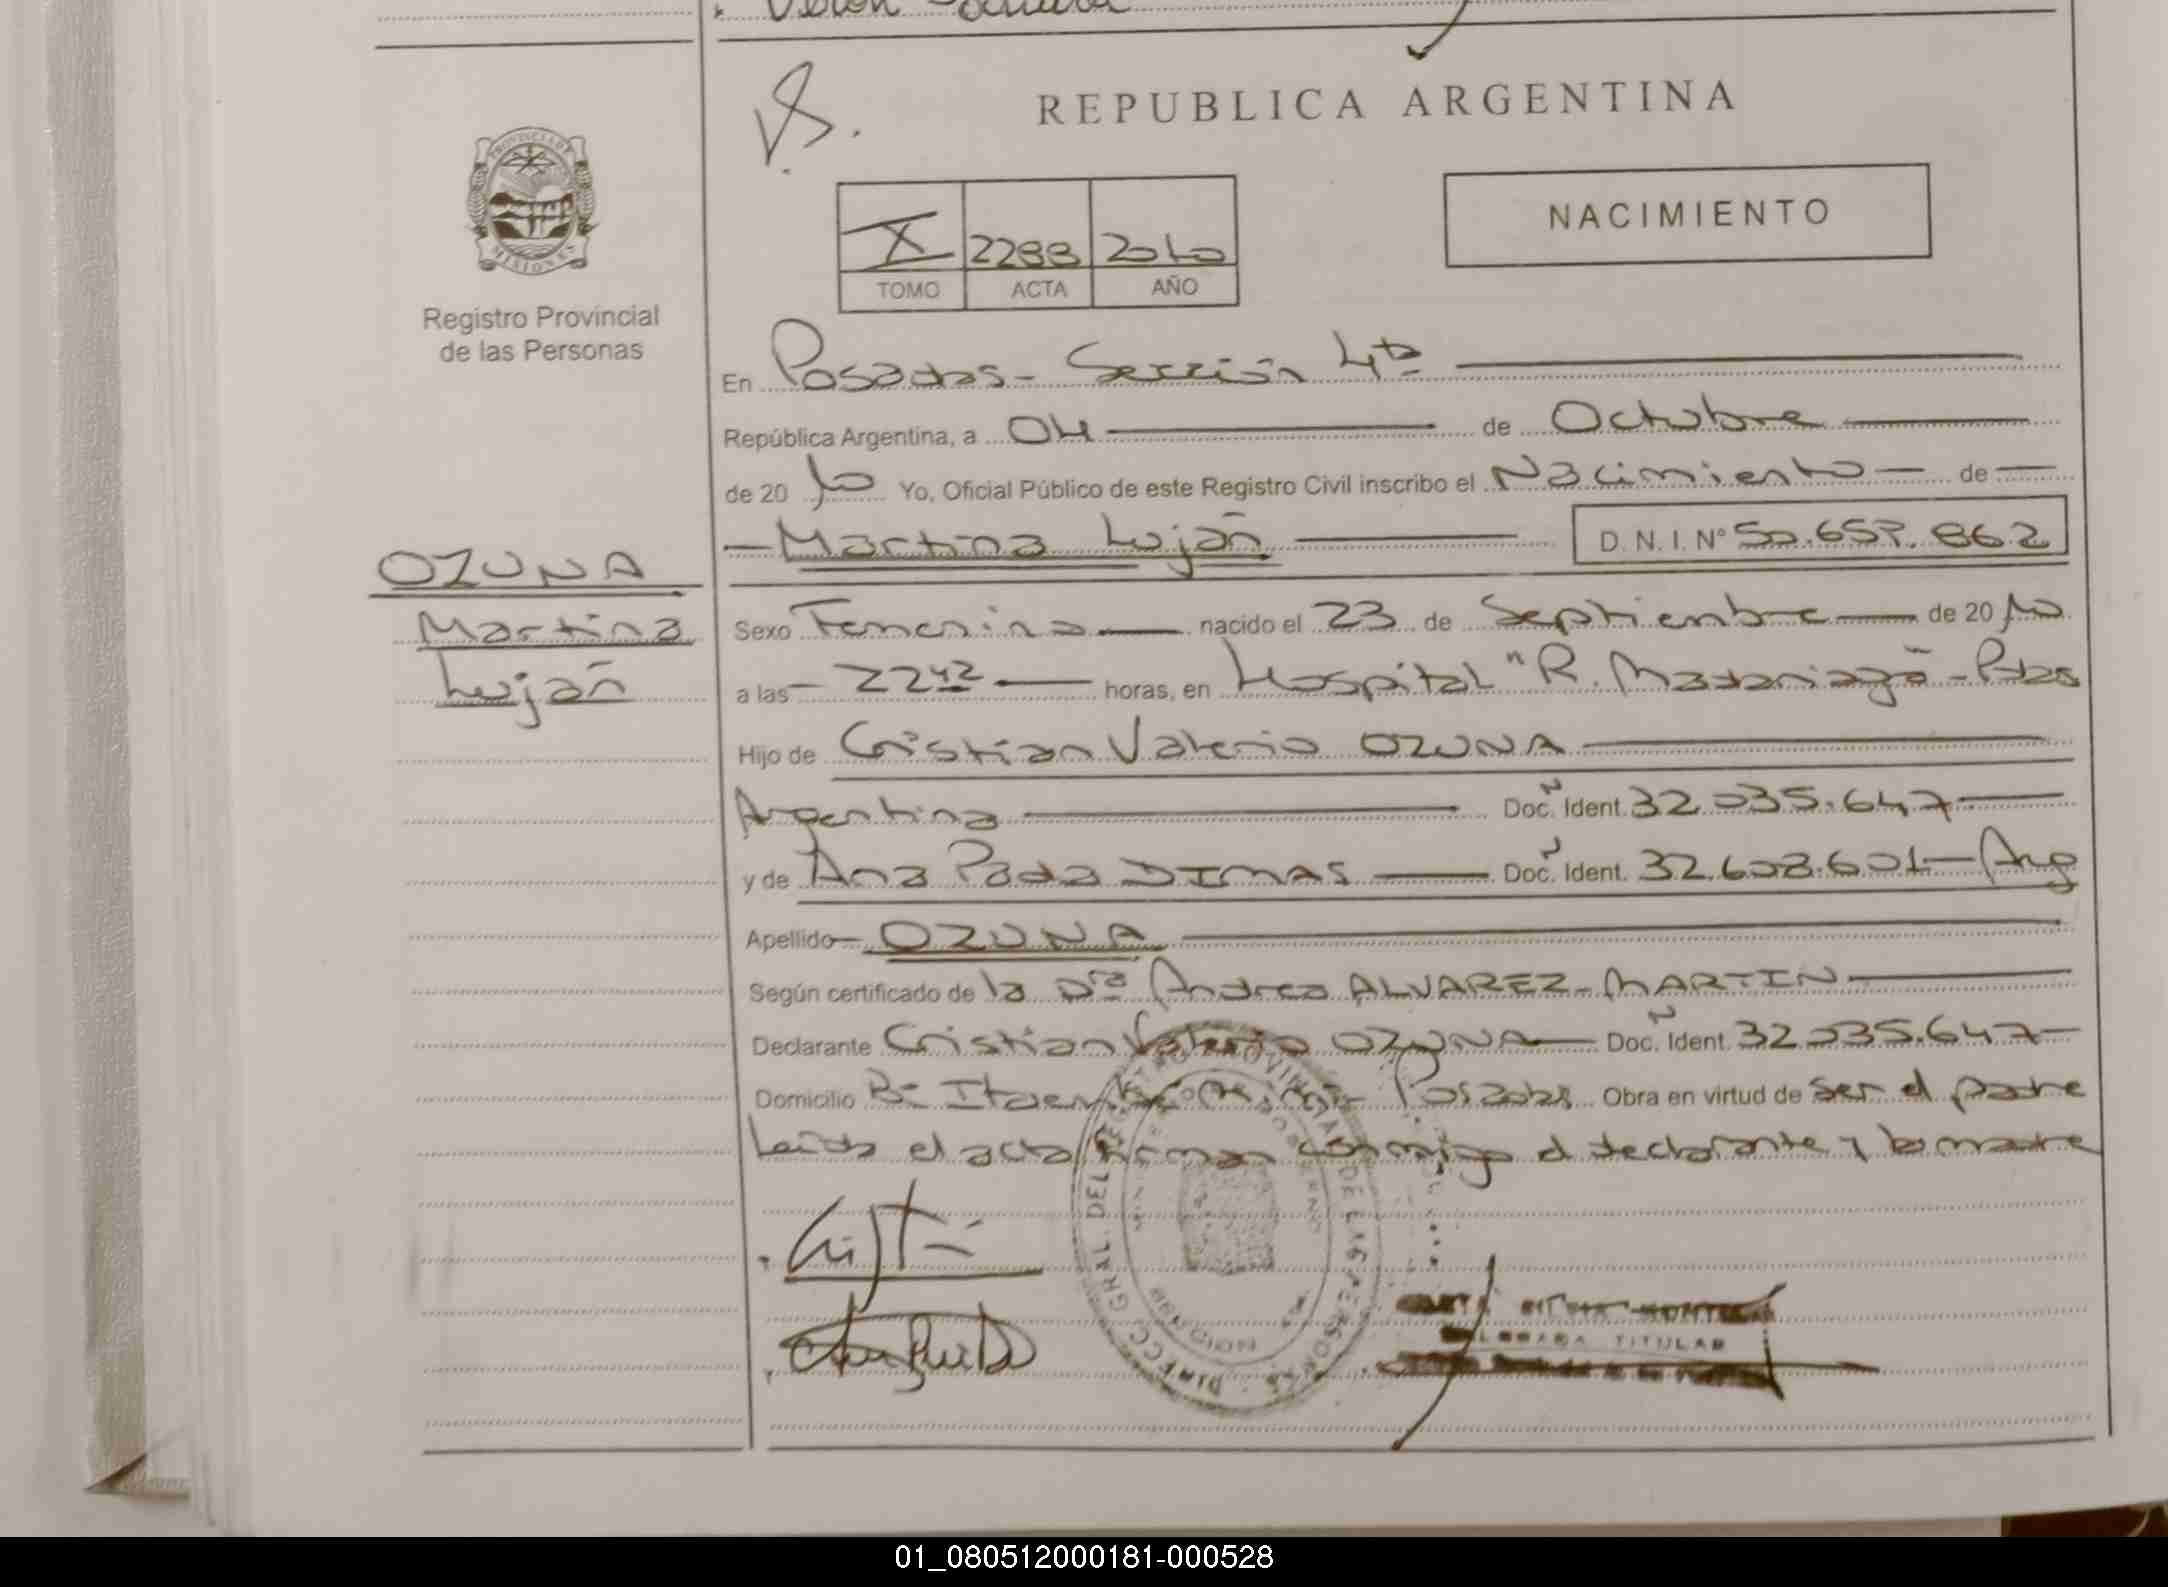 REPUBLICA ARGENTINA
PROVINCIA DE MISIONES
Registro Provincial
de las Personas
NACIMIENTO
X 2288 2010
TOMO ACTA AÑO
En Posadas - Sección 4ta
República Argentina, a 04 de Octubre
de 2010 Yo, Oficial Público de este Registro Civil inscribo el Nacimiento de
Martina Luján D.N.I. Nº 50.657.862
OZUNA
Martina
Luján
Sexo Femenino nacido el 23 de Septiembre de 2010
a las 22 42 horas, en Hospital "R. Madariaga" - Pdas
Hijo de Cristian Valerio OZUNA
Argentina Doc. Ident. 32.035.647
y de Ana DIMAS Doc. Ident. 32.608.601 - Arg
Apellido OZUNA
Según certificado de la Dra Andrea ALVAREZ - MARTIN
Declarante Cristian Valerio OZUNA Doc. Ident. 32.035.647
Domicilio Bº Posadas Obra en virtud de ser el padre
Leída el acta firman conmigo el declarante y la madre
TITULAR
01_080512000181-000528